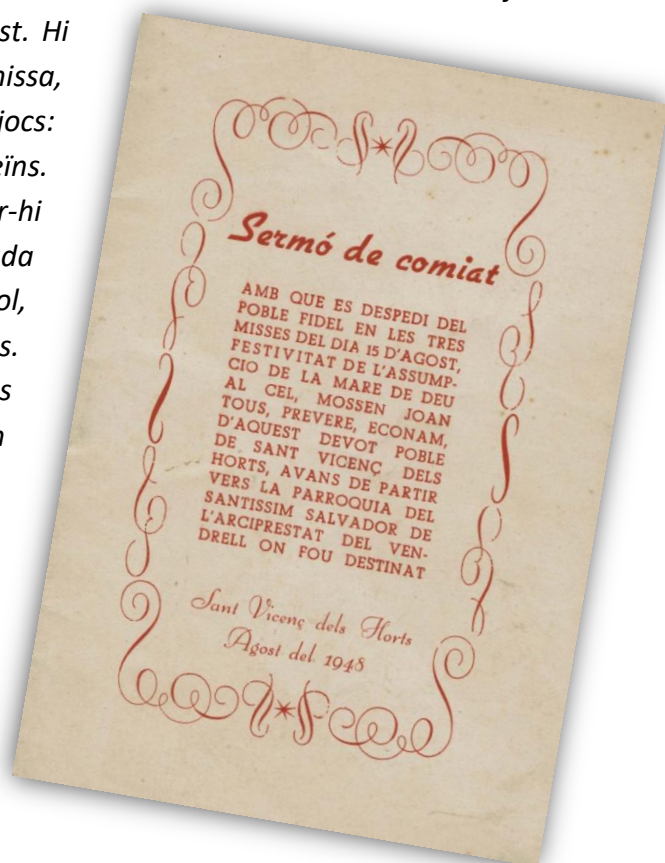 st. Hi
missa,
jocs:
eïns.
r-hi
da
ol,
s.
s
Sermó de comiat
AMB QUE ES DESPEDI DEL
POBLE FIDEL EN LES TRES
MISSES DEL DIA 15 D'AGOST,
FESTIVITAT DE L'ASSUMP-
CIO DE LA MARE DE DEU
AL CEL, MOSSEN JOAN
TOUS, PREVERE, ECONAM,
D'AQUEST DEVOT POBLE
DE SANT VICENÇ DELS
HORTS, AVANS DE PARTIR
VERS LA PARROQUIA DEL
SANTISSIM SALVADOR DE
L'ARCIPRESTAT DEL VEN-
DRELL ON FOU DESTINAT
Sant Vicenç dels Horts
Agost del 1948